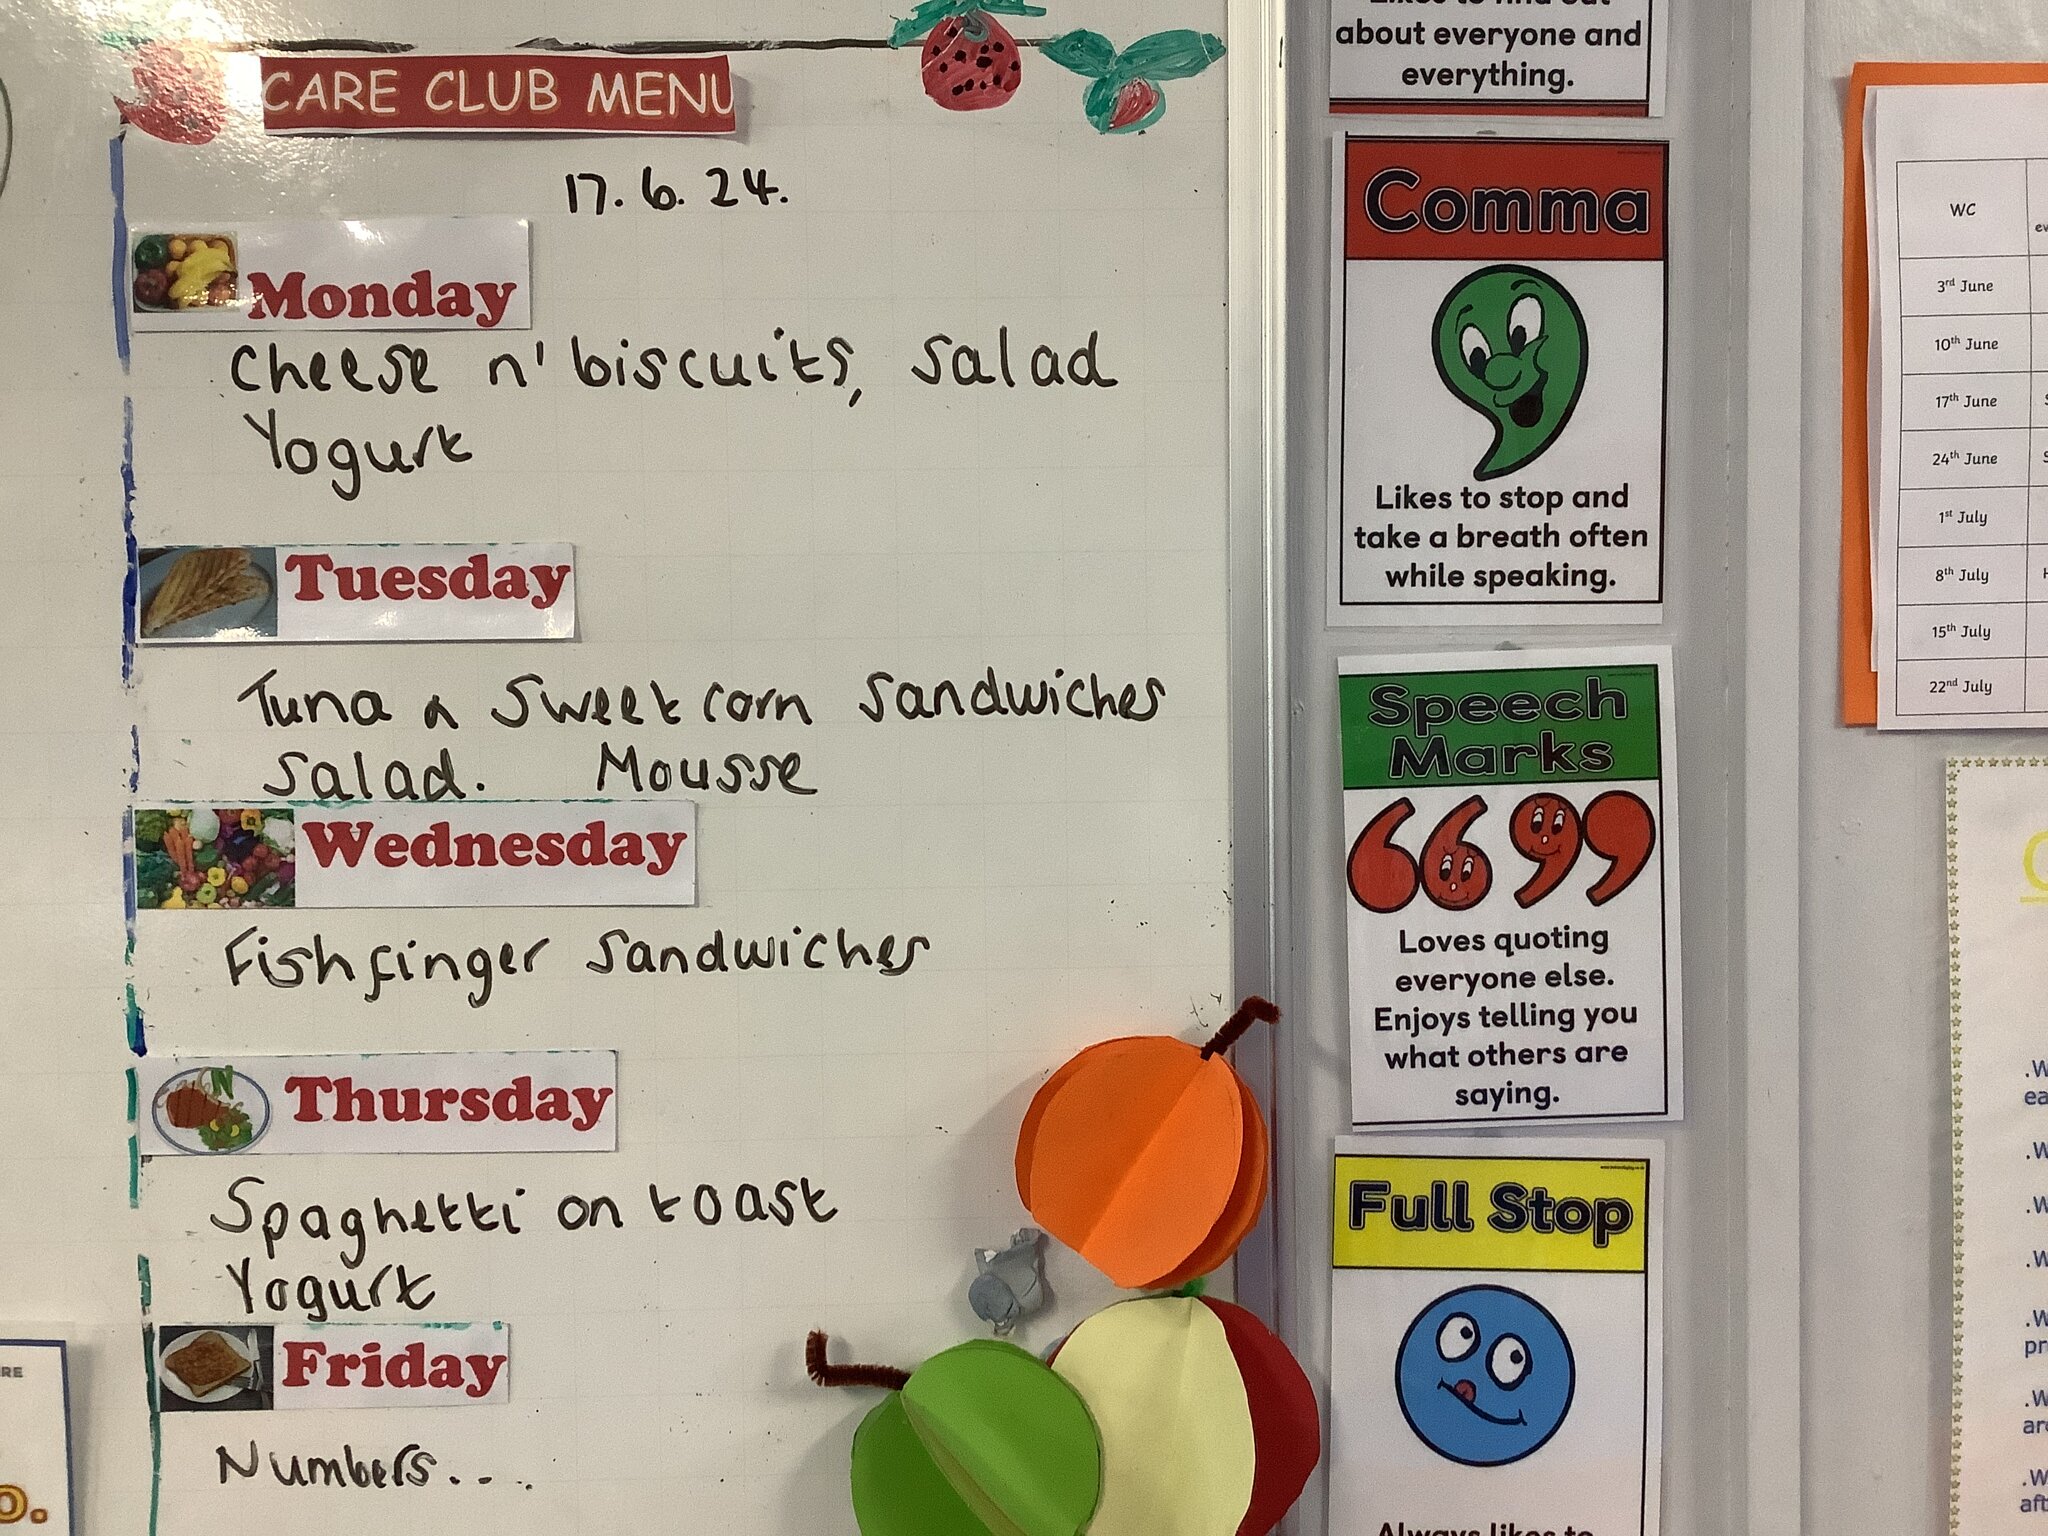 CARE CLUB MENU
17.6.24.
Monday
Cheese n' biscuits, salad
Yogurt
Tuesday
Tuna n Sweetcorn sandwiches
salad. Mousse
Wednesday
Fishfinger sandwiches
Thursday
Spaghetti on toast
Yogurt
Friday
Numbers....
about everyone and
everything.
Comma
Likes to stop and
take a breath often
while speaking.
Speech
Marks
66 99
Loves quoting
everyone else.
Enjoys telling you
what others are
saying.
Full Stop
Always likes to
WC
3rd June
10th June
17th June
24th June
1st July
8th July
15th July
22nd July